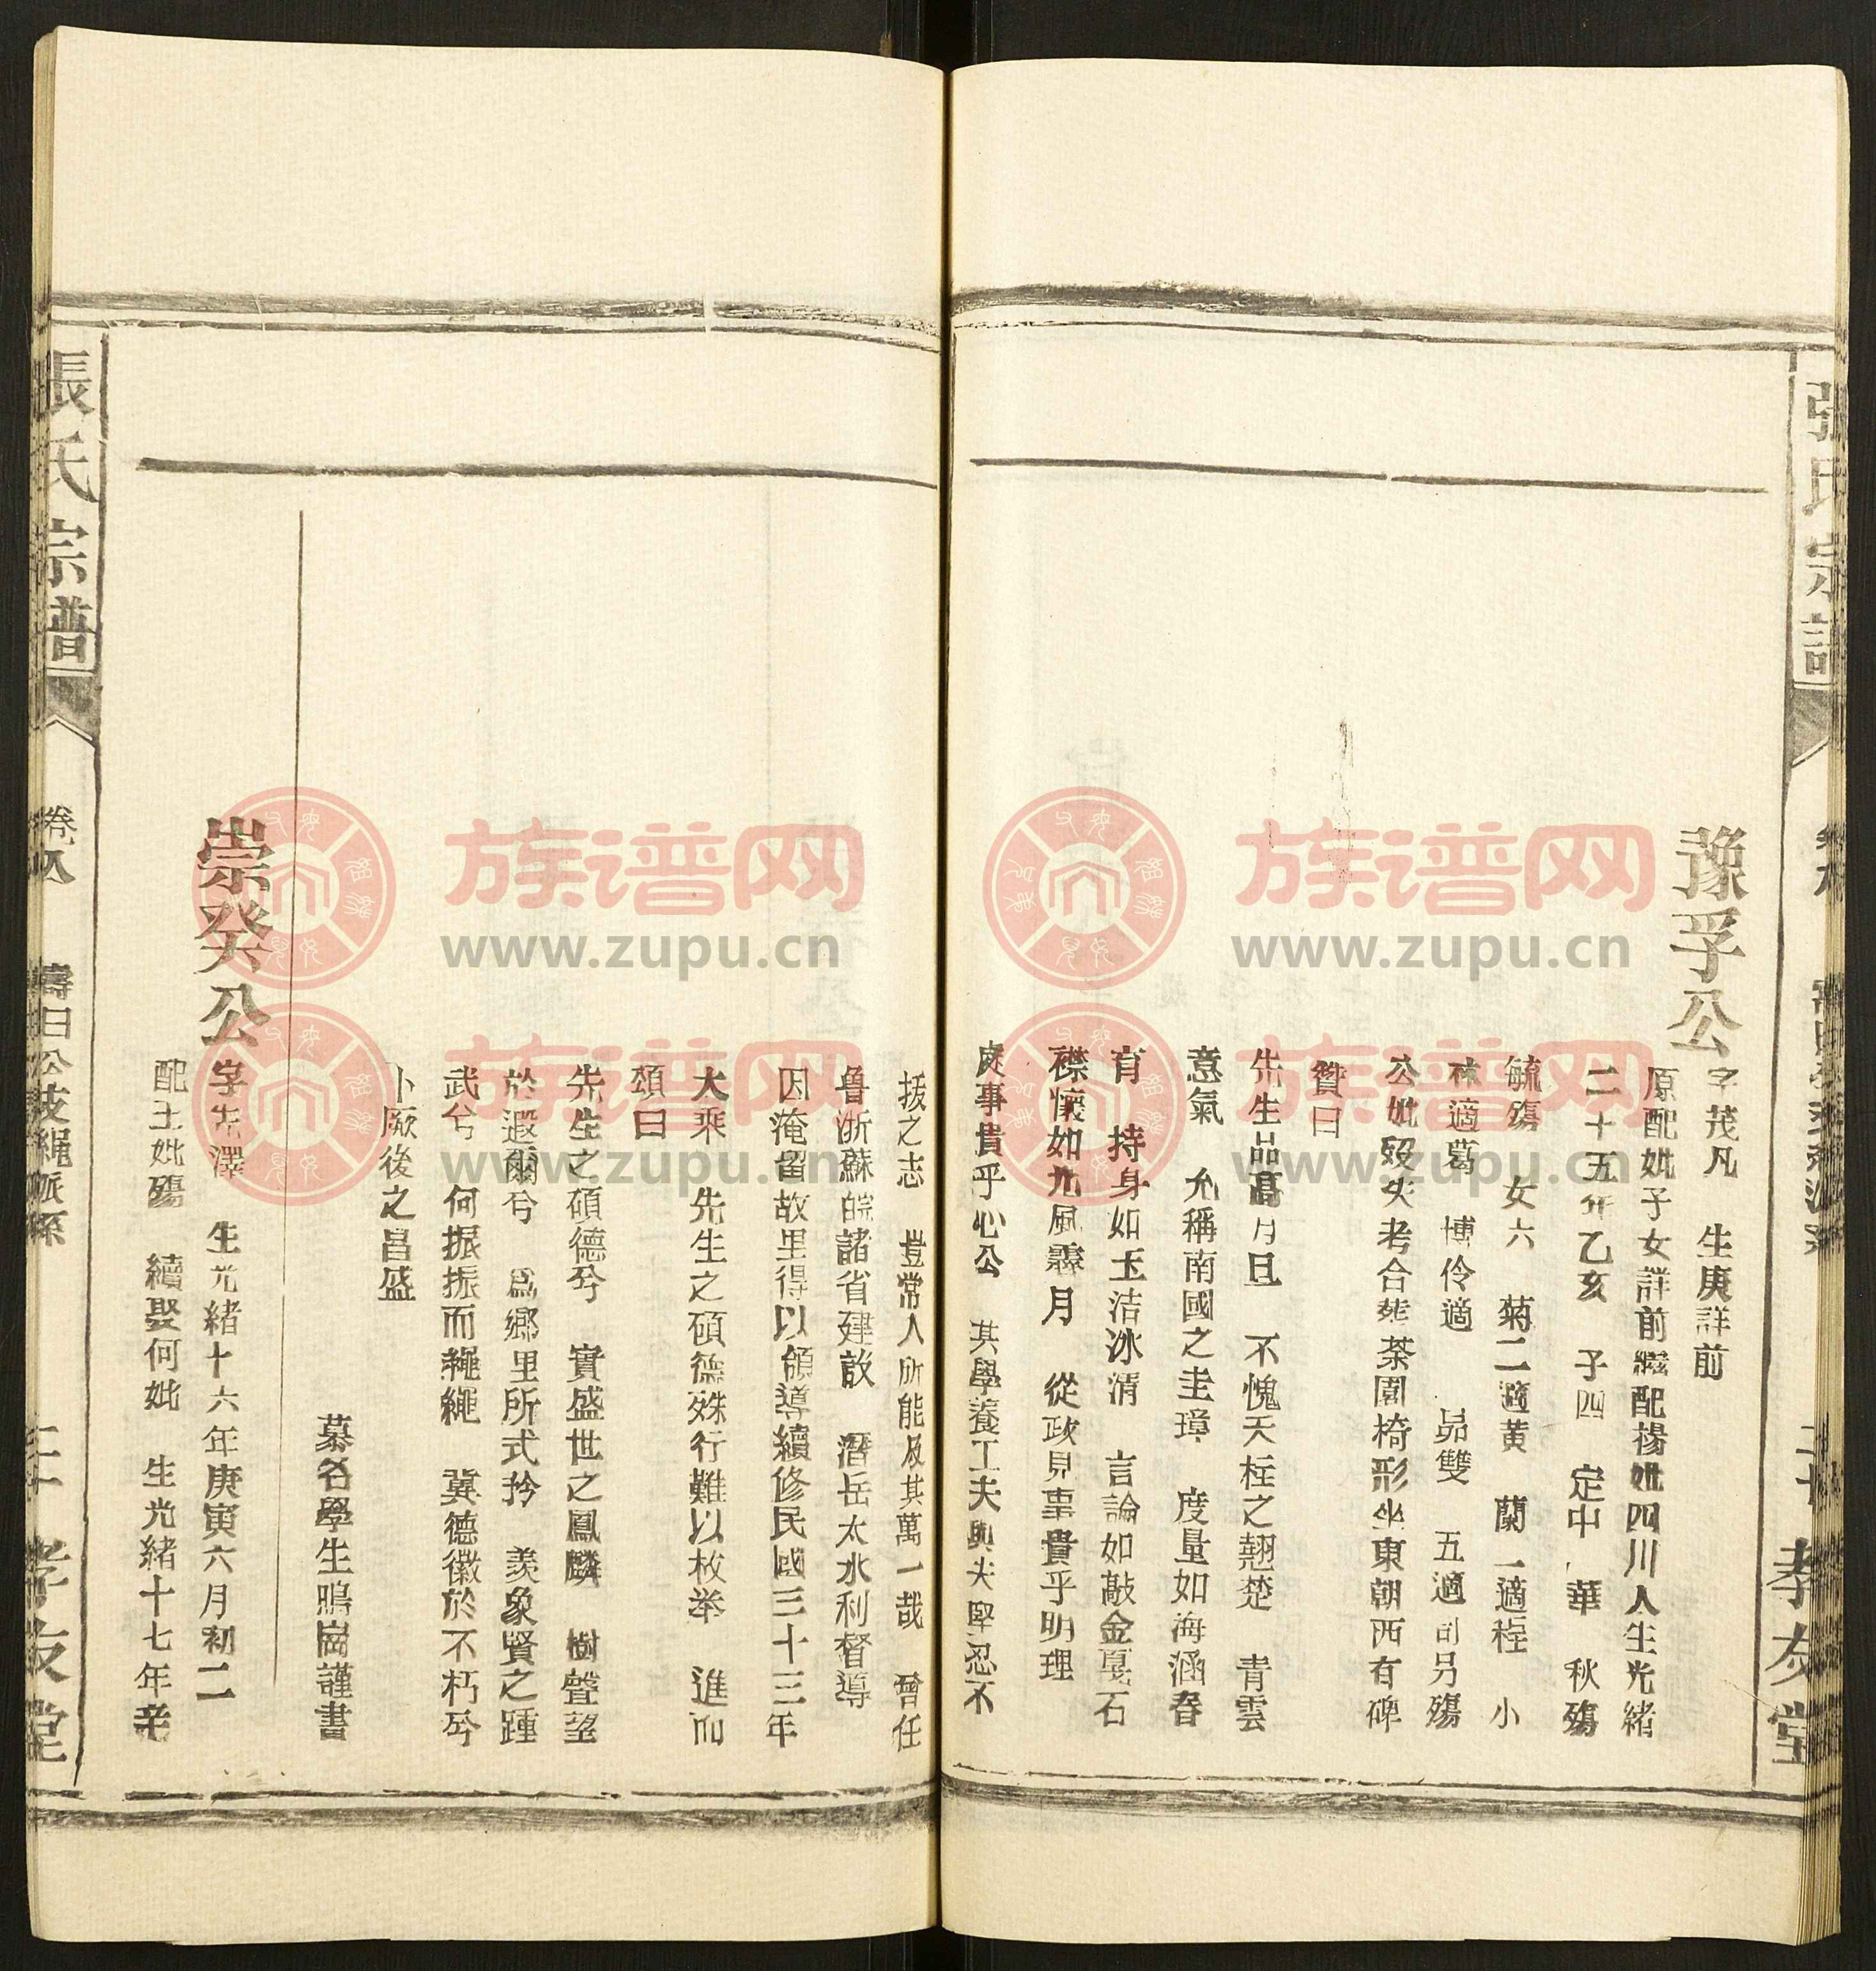 豫孚公
字茂凡　生庚詳前
原配妣子女詳前繼配楊妣四川人生光緒
二十五年乙亥　子四　定中　華　秋殤
毓殤　女六　菊二適黃　蘭一適程　小
適葛　博伶適　昴雙　五適　殤
公妣歿失考合葬茶園椅形坐東朝西有碑
贊曰
先生品高月旦　不愧天柱之翹楚　青雲
意氣　允稱南國之圭璋　度量如海涵春
育　持身如玉洁冰清　言論如敲金戛石
襟懷如光風霽月　從政見事貴乎明理
處事貴乎心公　其學養工夫與夫堅忍不
拔之志　豈常人所能及其萬一哉　曾任
魯浙蘇皖諸省建設　潛岳太水利督導
因淹留故里得以領導續修民國三十三年
大乘　先生之碩德殊行難以枚举　進而
頌曰
先生之碩德兮　實盛世之鳳麟　樹聲望
於遐爾兮　爲鄉里所式矜　羨象賢之踵
武兮　何振振而繩繩　冀德徽於不朽兮
卜厥後之昌盛
慕名學生鵰崗謹書
崇癸公
字先澤　生光緒十六年庚寅六月初二
配王妣殤　續娶何妣　生光緒十七年辛
張氏宗譜
卷八
壽日公技繩派系
孝友堂
張氏宗譜
孝友堂
族谱网
www.zupu.cn
族谱网
www.zupu.cn
族谱网
www.zupu.cn
族谱网
www.zupu.cn